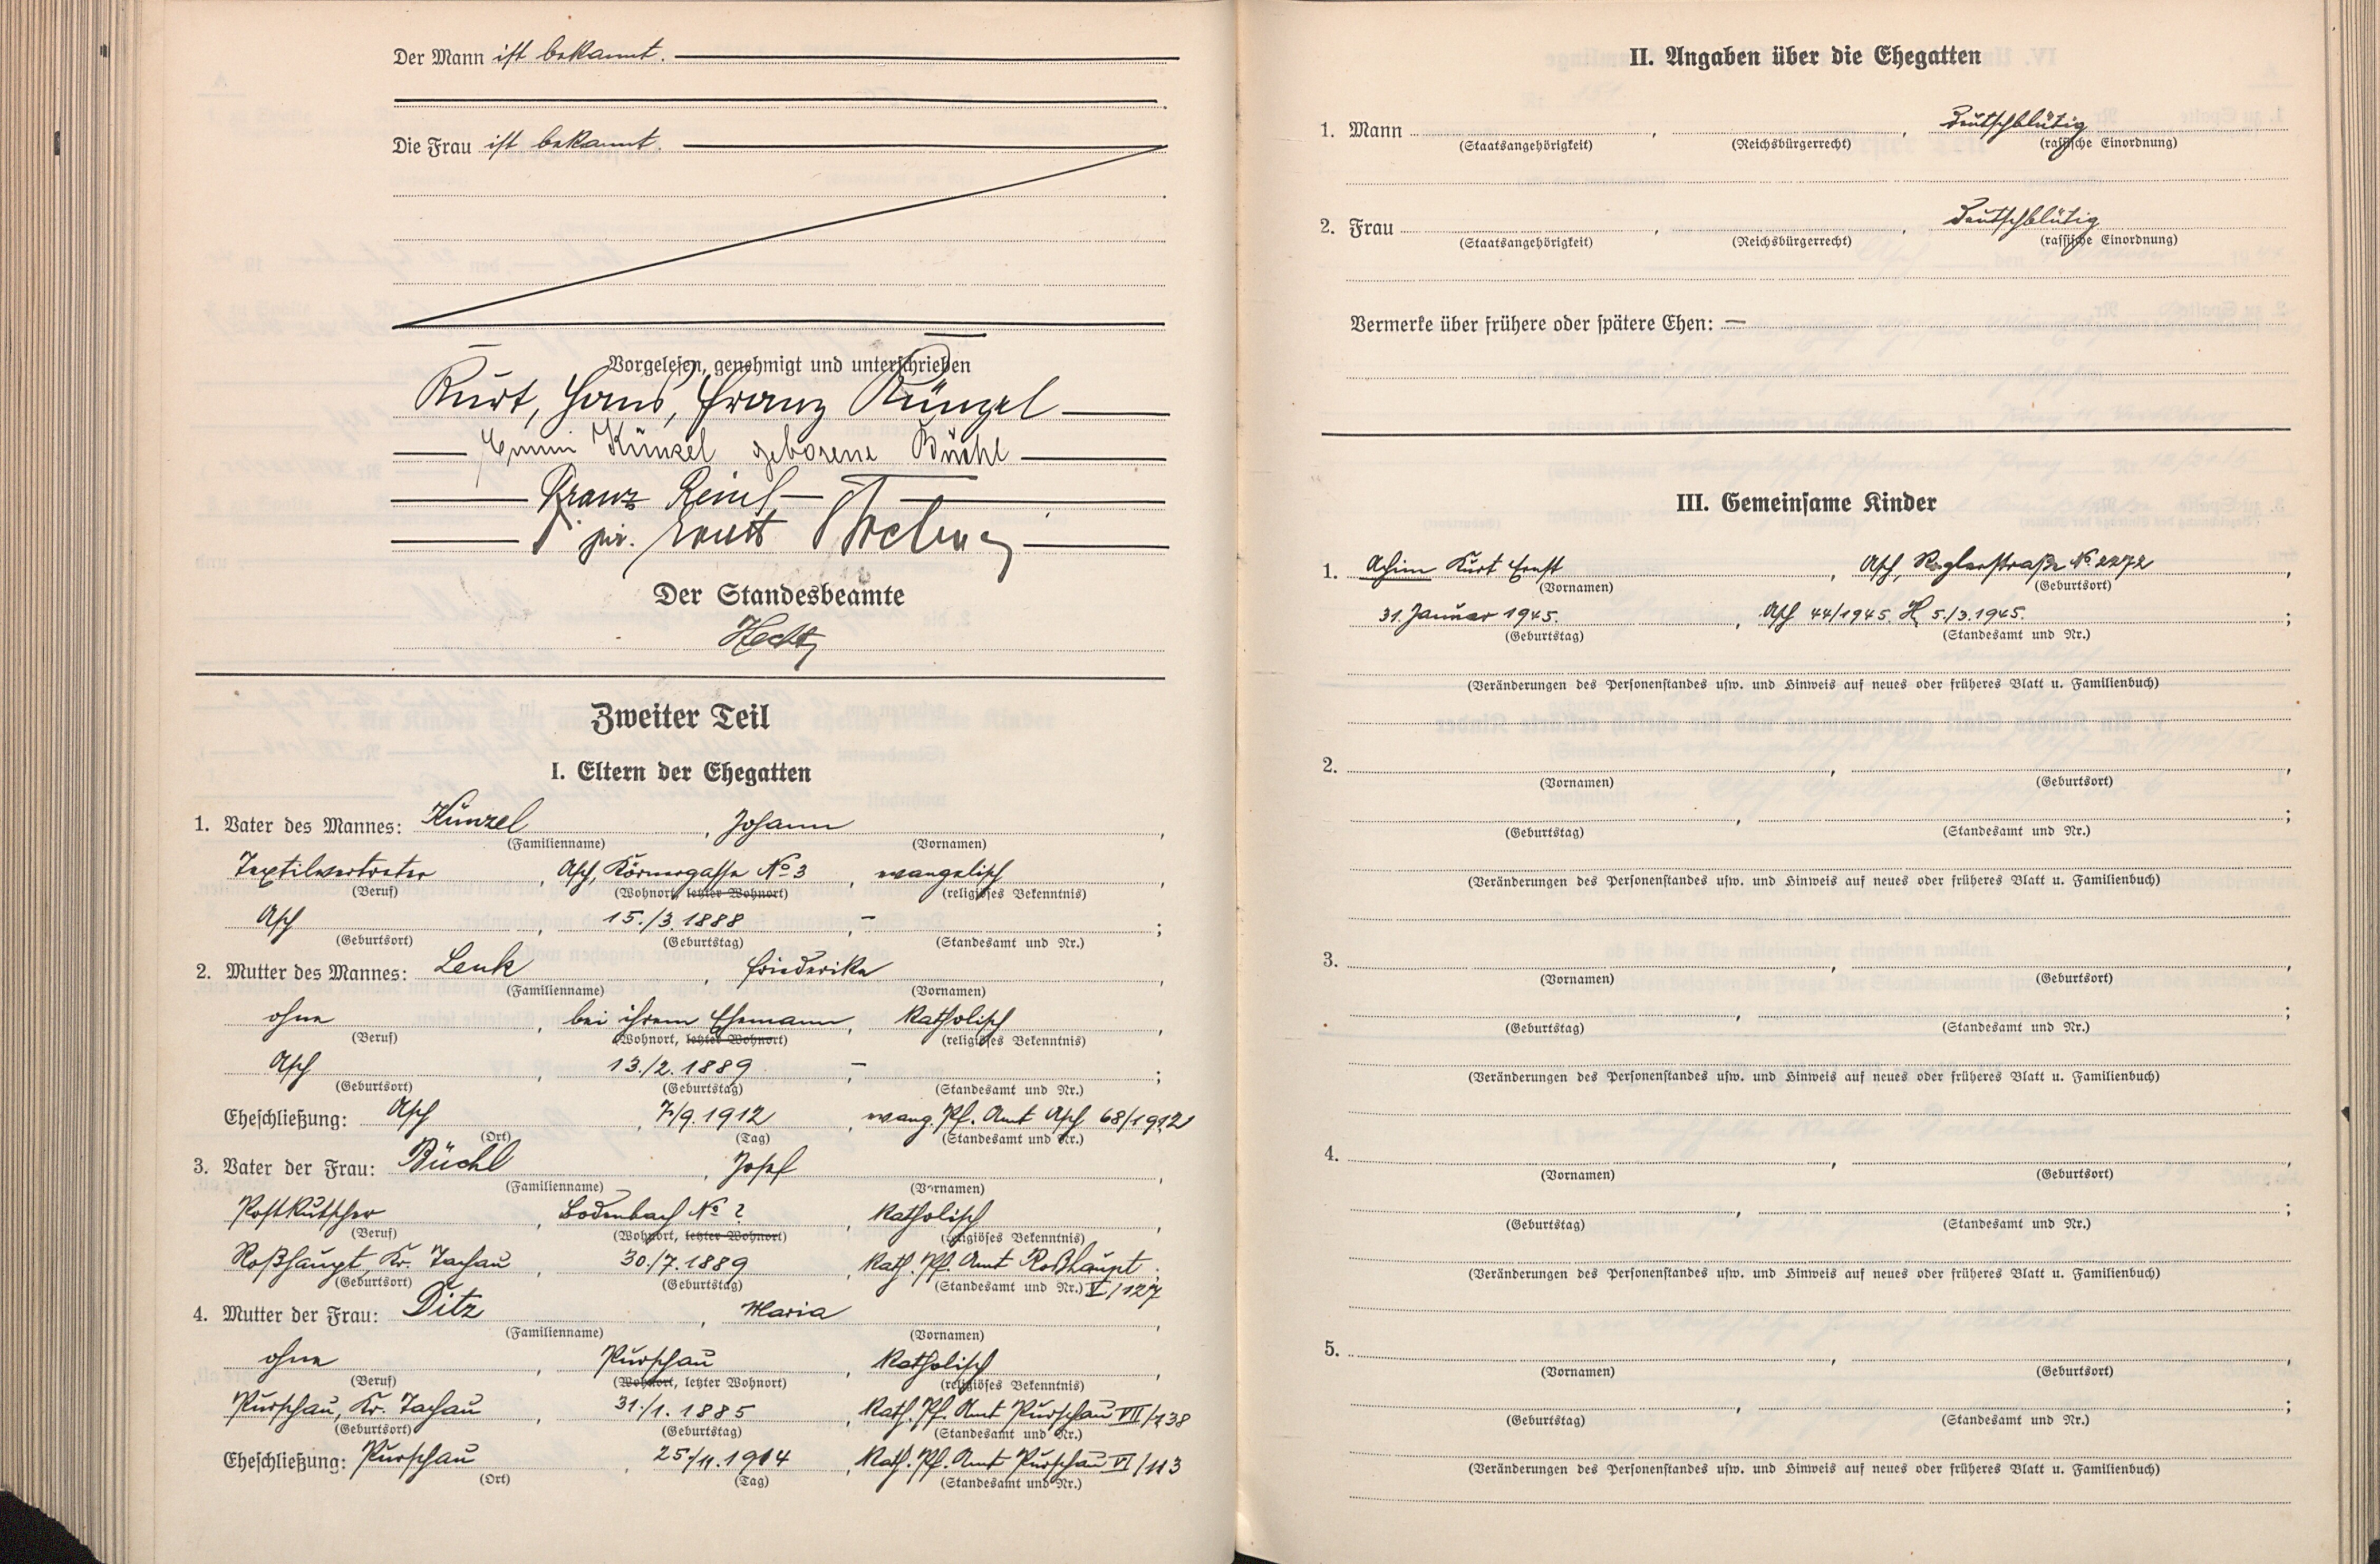 Der Mann ist bekannt.
Die Frau ist bekannt.
Vorgelesen, genehmigt und unterschrieben
Kurt, Hans, Franz Künzel
Emmi Künzel geborene Büchl
Franz
jur. Ernst
Der Standesbeamte
Zweiter Teil
I. Eltern der Ehegatten
1. Vater des Mannes: Künzel, Johann,
(Familienname) (Vornamen)
Textilvertreter, Asch, Körnergasse No 3, evangelisch,
(Beruf) (Wohnort, letzter Wohnort) (religiöses Bekenntnis)
Asch, 15./3.1888, –;
(Geburtsort) (Geburtstag) (Standesamt und Nr.)
2. Mutter des Mannes: Lenk, Friederike,
(Familienname) (Vornamen)
ohne, bei ihrem Ehemann, katholisch,
(Beruf) (Wohnort, letzter Wohnort) (religiöses Bekenntnis)
Asch, 13./2.1889, –;
(Geburtsort) (Geburtstag) (Standesamt und Nr.)
Eheschließung: Asch, 7./9.1912, evang. Pf. Amt Asch 68/1912
(Ort) (Tag) (Standesamt und Nr.)
3. Vater der Frau: Büchl, Josef,
(Familienname) (Vornamen)
Postkutscher, Bodenbach No ?, katholisch,
(Beruf) (Wohnort, letzter Wohnort) (religiöses Bekenntnis)
Roßhaupt, Kr. Tachau, 30./7.1889, kath. Pf. Amt Roßhaupt;
(Geburtsort) (Geburtstag) (Standesamt und Nr.) V/127
4. Mutter der Frau: Ditz, Maria,
(Familienname) (Vornamen)
ohne, Purschau, katholisch,
(Beruf) (Wohnort, letzter Wohnort) (religiöses Bekenntnis)
Purschau, Kr. Tachau, 31./1.1885, kath. Pf. Amt Purschau VII/138
(Geburtsort) (Geburtstag) (Standesamt und Nr.)
Eheschließung: Purschau, 25./11.1914, kath. Pf. Amt Purschau VI/113
(Ort) (Tag) (Standesamt und Nr.)
II. Angaben über die Ehegatten
1. Mann , , Deutschblütig
(Staatsangehörigkeit) (Reichsbürgerrecht) (rassische Einordnung)
2. Frau , , Deutschblütig
(Staatsangehörigkeit) (Reichsbürgerrecht) (rassische Einordnung)
Vermerke über frühere oder spätere Ehen: –
III. Gemeinsame Kinder
1. Achim Kurt Ernst, Asch, No 2272,
(Vornamen) (Geburtsort)
31. Januar 1945., Asch 44/1945. 5./3.1945.;
(Geburtstag) (Standesamt und Nr.)
(Veränderungen des Personenstandes usw. und Hinweis auf neues oder früheres Blatt u. Familienbuch)
2. , ,
(Vornamen) (Geburtsort)
, ;
(Geburtstag) (Standesamt und Nr.)
(Veränderungen des Personenstandes usw. und Hinweis auf neues oder früheres Blatt u. Familienbuch)
3. , ,
(Vornamen) (Geburtsort)
, ;
(Geburtstag) (Standesamt und Nr.)
(Veränderungen des Personenstandes usw. und Hinweis auf neues oder früheres Blatt u. Familienbuch)
4. , ,
(Vornamen) (Geburtsort)
, ;
(Geburtstag) (Standesamt und Nr.)
(Veränderungen des Personenstandes usw. und Hinweis auf neues oder früheres Blatt u. Familienbuch)
5. , ,
(Vornamen) (Geburtsort)
, ;
(Geburtstag) (Standesamt und Nr.)
(Veränderungen des Personenstandes usw. und Hinweis auf neues oder früheres Blatt u. Familienbuch)